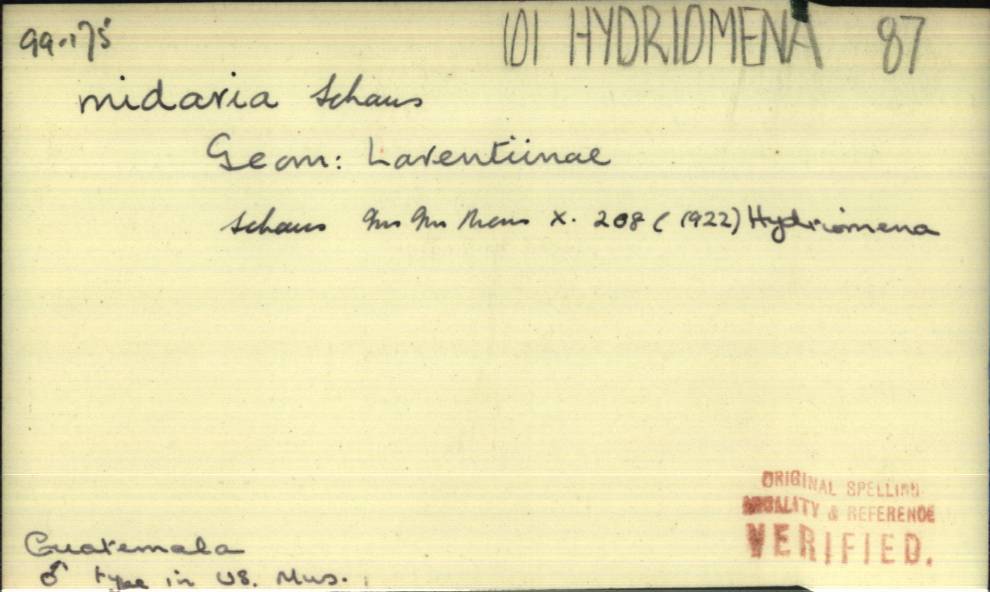 99.175 101 HYDRIOMENA 87
midaria Schaus
Geom: Larentiinae
Schaus Ins Ins Mens X. 208 (1922) Hydriomena
ORIGINAL SPELLING
LOCALITY & REFERENCE
VERIFIED.
Guatemala
♂ type in US. Mus.